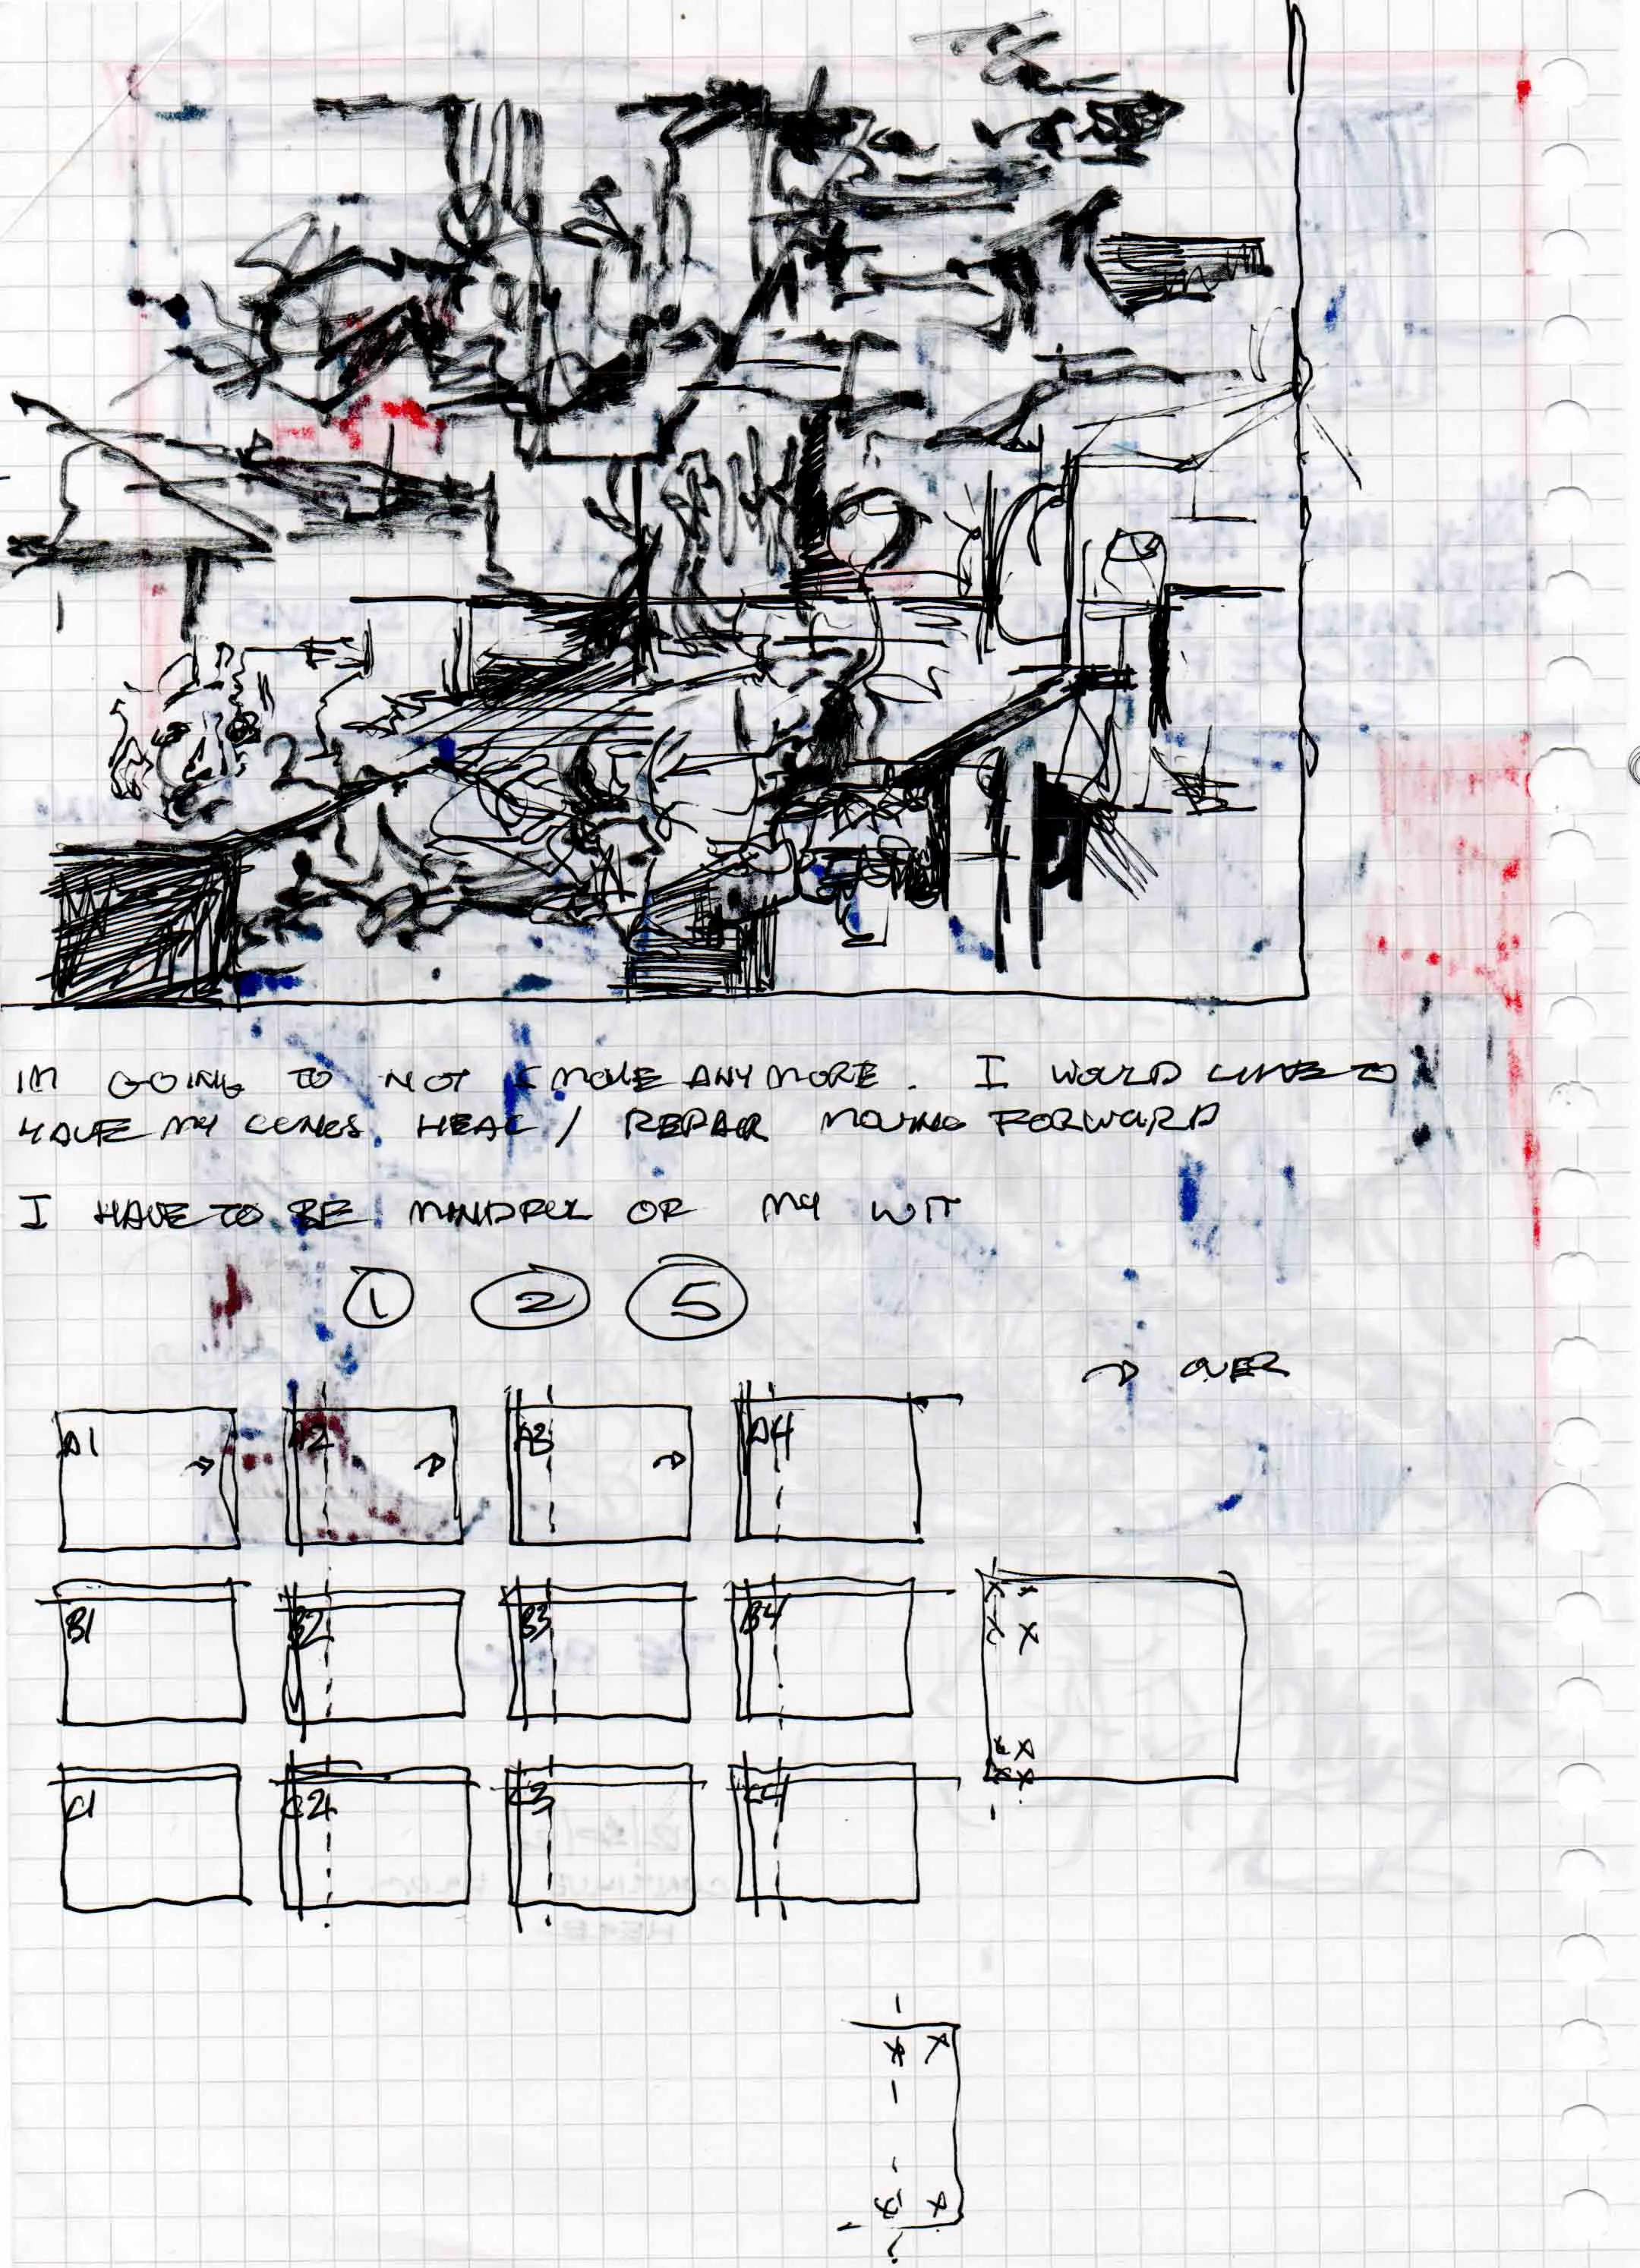 IM GOING TO NOT SMOKE ANYMORE. I WOULD LIKE TO
HAVE MY LUNGS HEAL / REPAIR MOVING FORWARD
I HAVE TO BE MINDFUL OF MY WIT
1 2 5
→ OVER
A1 A2 A3 A4
B1 B2 B3 B4
C1 C2 C3 C4